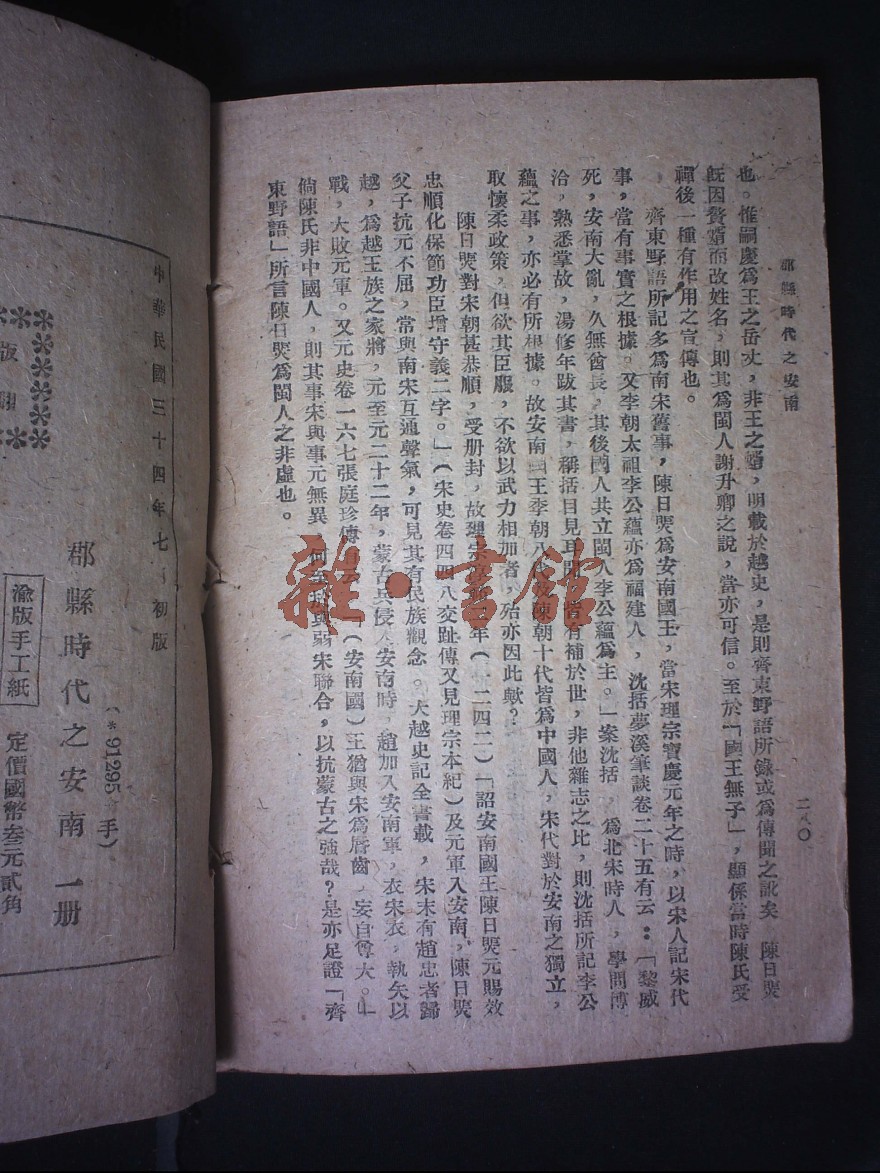 郡縣時代之安南
二八〇
也。惟嗣慶為王之岳丈，非王之壻，明載於越史，是則齊東野語所錄或為傳聞之訛矣　陳日煚
既因贅壻而改姓名，則其為閩人謝升卿之說，當亦可信。至於「國王無子」，顯係當時陳氏受
禪後一種有作用之宣傳也。
齊東野語所記多為南宋舊事，陳日煚為安南國王，當宋理宗寶慶元年之時，以宋人記宋代
事，當有事實之根據。又李朝太祖李公蘊亦為福建人，沈括夢溪筆談卷二十五有云：「黎威
死，安南大亂，久無酋長，其後國人共立閩人李公蘊為主。」案沈括，為北宋時人，學問博
洽，熟悉掌故，湯修年跋其書，稱括目見耳聞，皆有補於世，非他雜志之比，則沈括所記李公
蘊之事，亦必有所根據。故安南國王李朝八代及陳朝十代皆為中國人，宋代對於安南之獨立，
取懷柔政策，但欲其臣服，不欲以武力相加者，殆亦因此歟？
陳日煚對宋朝甚恭順，受册封，故理宗淳祐二年（一二四二）「詔安南國王陳日煚元賜效
忠順化保節功臣增守義二字。」（宋史卷四四八交趾傳又見理宗本紀）及元軍入安南，陳日煚
父子抗元不屈，常與南宋互通聲氣，可見其有民族觀念。大越史記全書載，宋末有趙忠者歸
越，為越王族之家將，元至元二十二年，蒙古兵侵入安南時，趙加入安南軍，衣宋衣，執矢以
戰，大敗元軍。又元史卷一六七張庭珍傳有云：「（安南國）王猶與宋為脣齒，妄自尊大。」
倘陳氏非中國人，則其事宋與事元無異，何至與弱宋聯合，以抗蒙古之強哉？是亦足證「齊
東野語」所言陳日煚為閩人之非虛也。
中華民國三十四年七月初版
（*91295 手）
郡縣時代之安南 一册
渝版手工紙
定價國幣叁元貳角
版
翻
雜·書館